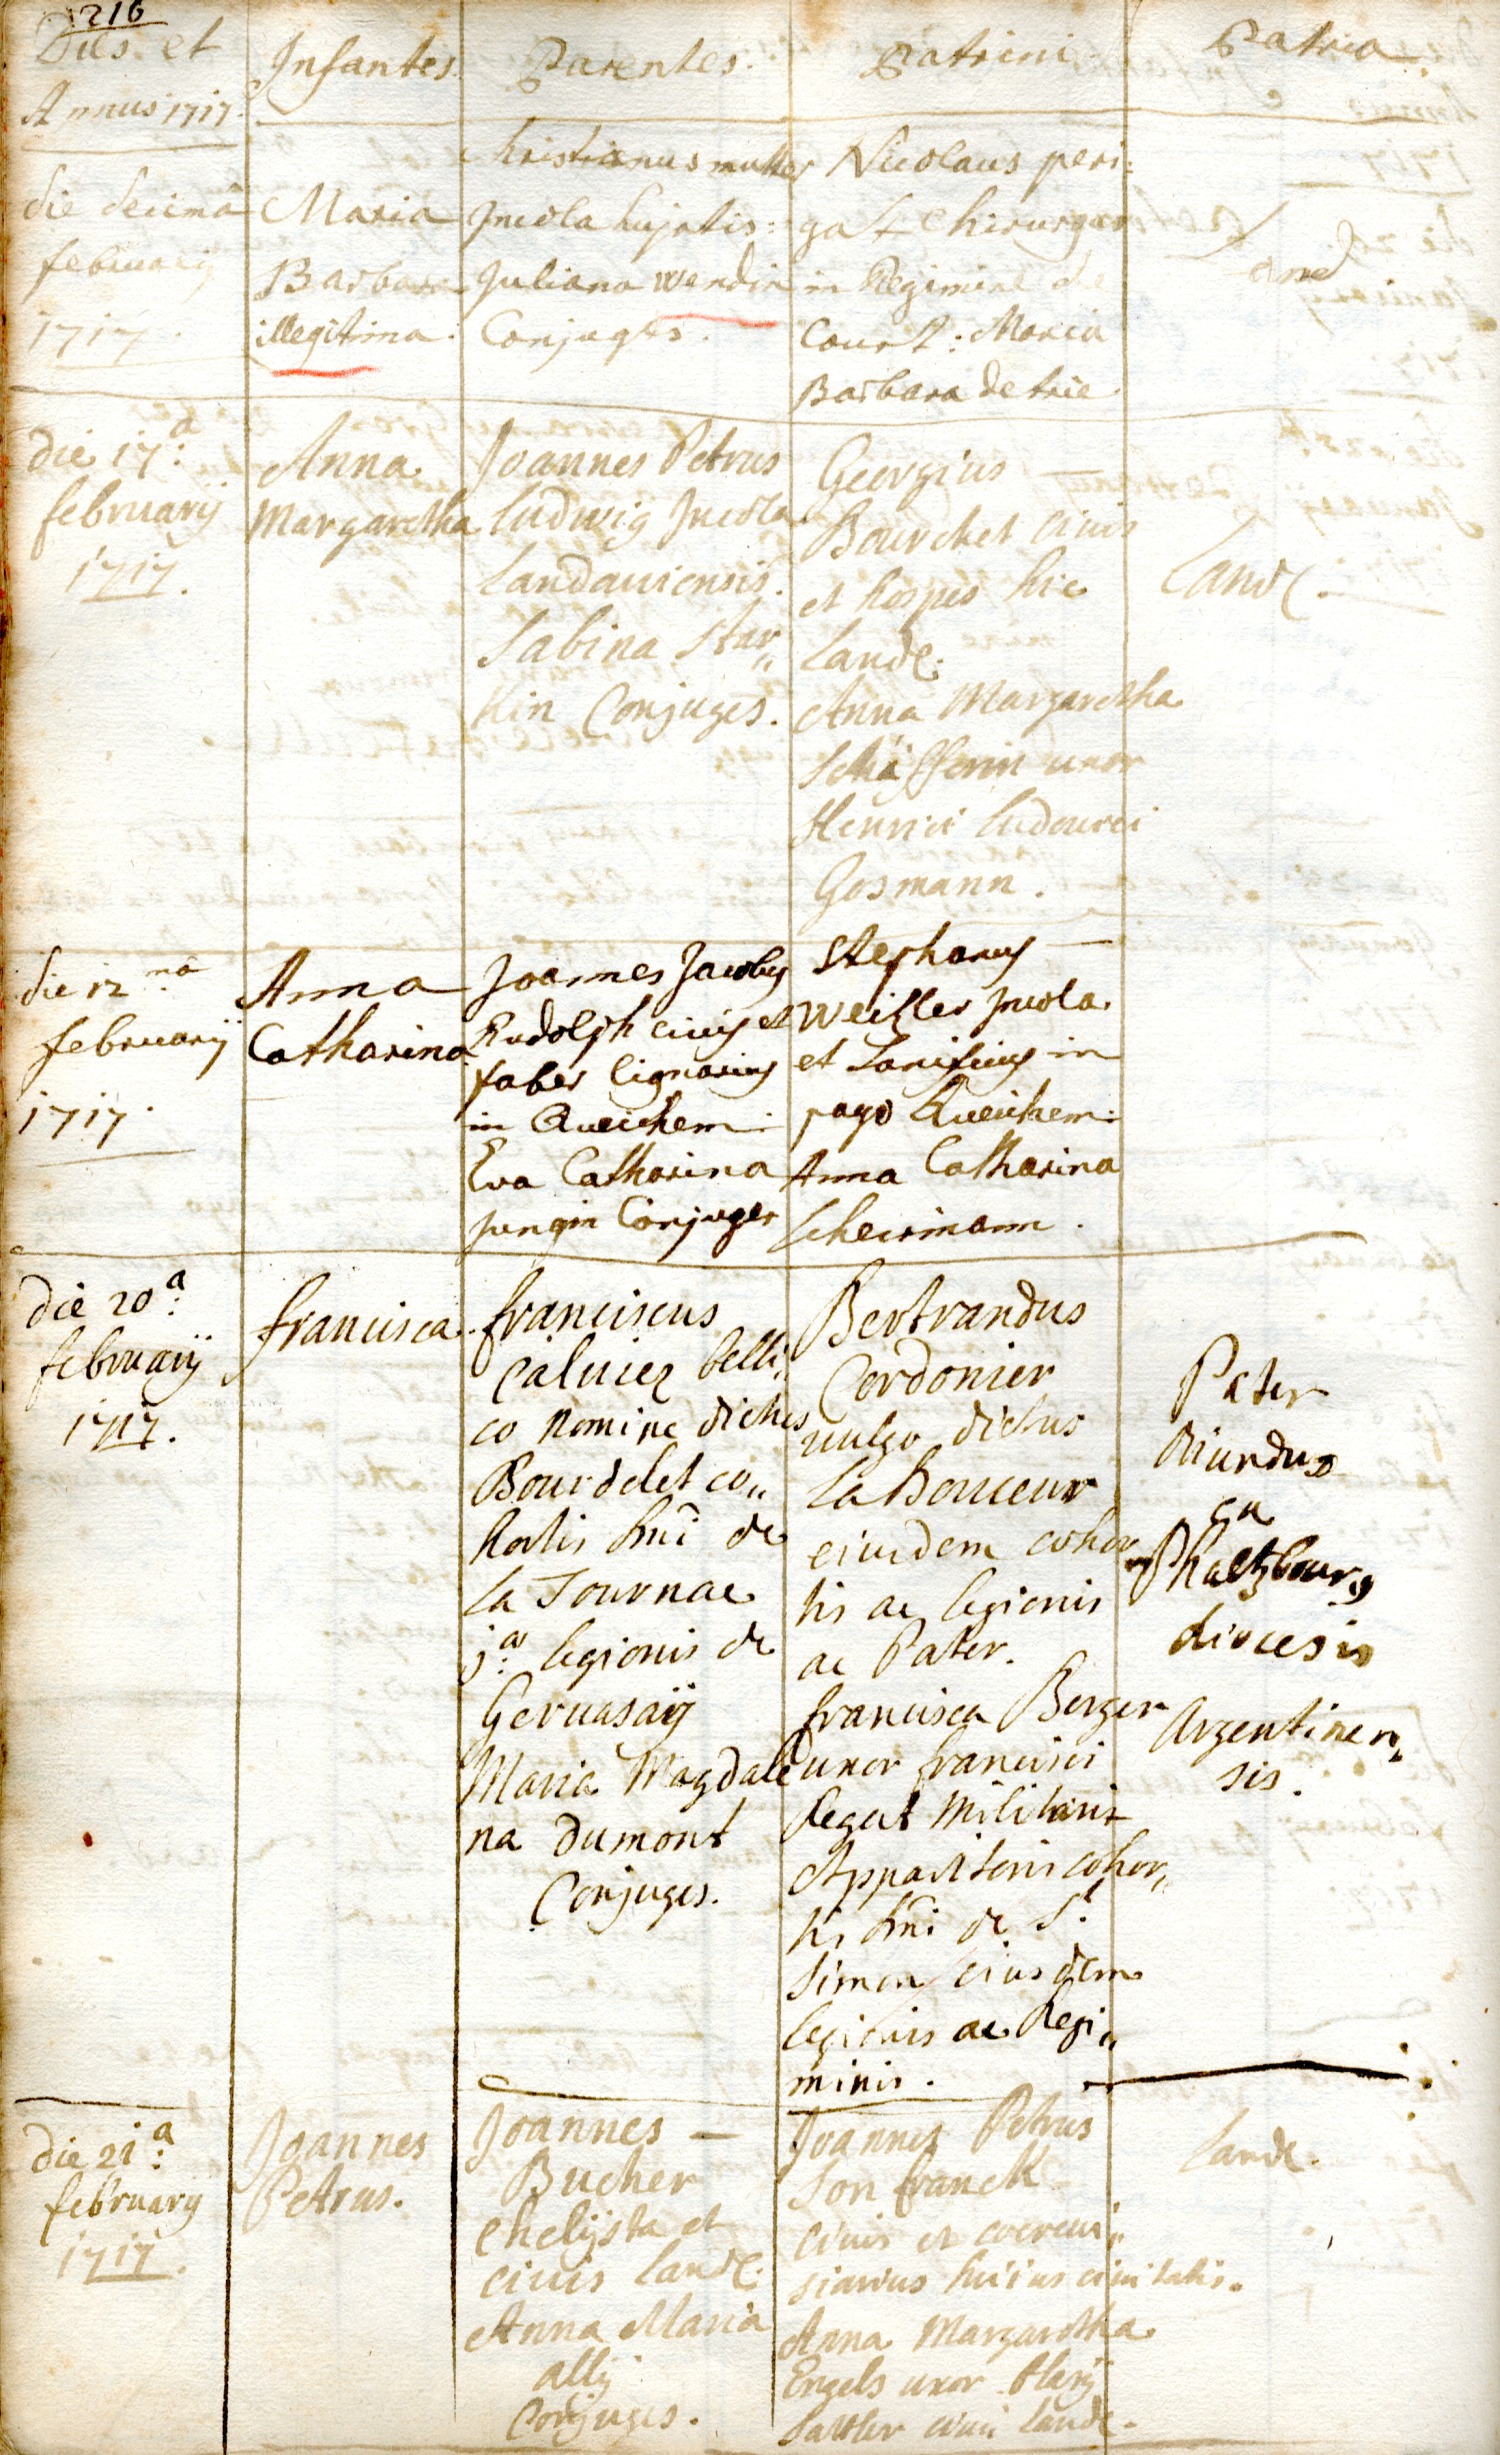 216
Dies et
Annus 1717.
Infantes.
Parentes.
Patrini.
Patria
die decima
februarij
1717.
Maria
Barbara
illegitima.
Christianus muller
Incola hujatis:
Juliana wendin
Conjuges.
Nicolaus peri:
gat Chirurgus
in Regimine de
Court: Maria
Barbara de trie.
die 17a:
februarij
1717.
Anna
Margaretha
Joannes Petrus
Ludwig Incola
Landauiensis.
Sabina Star„
kin Conjuges.
Georgius —
Bourchet ciuis
et hospes hic
Landæ.
Anna Margaretha
Schäfferin uxor
Henrici Ludouici
Gosmann.
Landæ.
die 12ma
februarij
1717.
Anna
Catharina
Joannes Jacobus
Rudolph civis et
faber lignarius
in Queichem:
Eva Catharina
Jungin Conjuges
Stephanus —
Weitzler Incola
et Lanificius in
pago Queichem:
Anna Catharina
Scheirmann.
die 20a:
februarij
1717.
francisca.
franciscus
Caluiez belli„
co nomine dictus
Bourdelet co„
hortis dni de
la Tournae
legionis de
Geruasaij
Maria Magdale
na dumont
Conjuges.
Bertrandus
Cordonier
uulgo dictus
la Douceur
eiusdem cohor
tis ac legionis
ac Pater.
francisca Berger
uxor francisci
Regat Militaris
Apparitoris cohor„
tis dni de St.
Simon eiusdem
legionis ac Regi„
minis.
Pater
oriundus
ex
Phaltzbourg
diocesis
Argentinen„
sis.
die 21a:
februarij
1717.
Joannes
Petrus.
Joannes —
Bucher
chelijsta et
ciuis Landæ:
Anna Maria
Conjuges.
Joannes Petrus
Son franck
ciuis et cereui„
siarius huius ciuitatis.
Anna Margaretha
Engels uxor
Sattler ciuis Landæ.
Landæ.